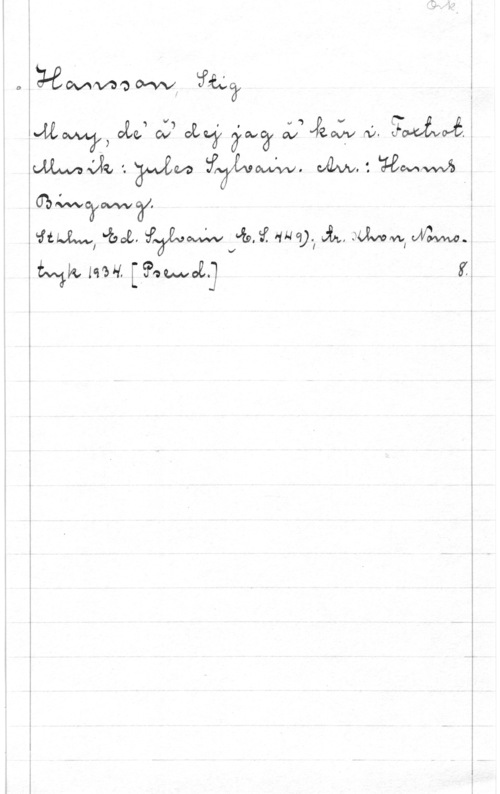 Ork.
Hansson, Stig
Mary, de' ä' dej jag ä' kär i. Foxtrot.
Musik: Jules Sylvain. Arr.: Hanns
Bingang.
Sthlm, Ed. Sylvain (E. S. 449); tr. Khvn, Nomo-
tryk 1934. [Pseud.] 8.